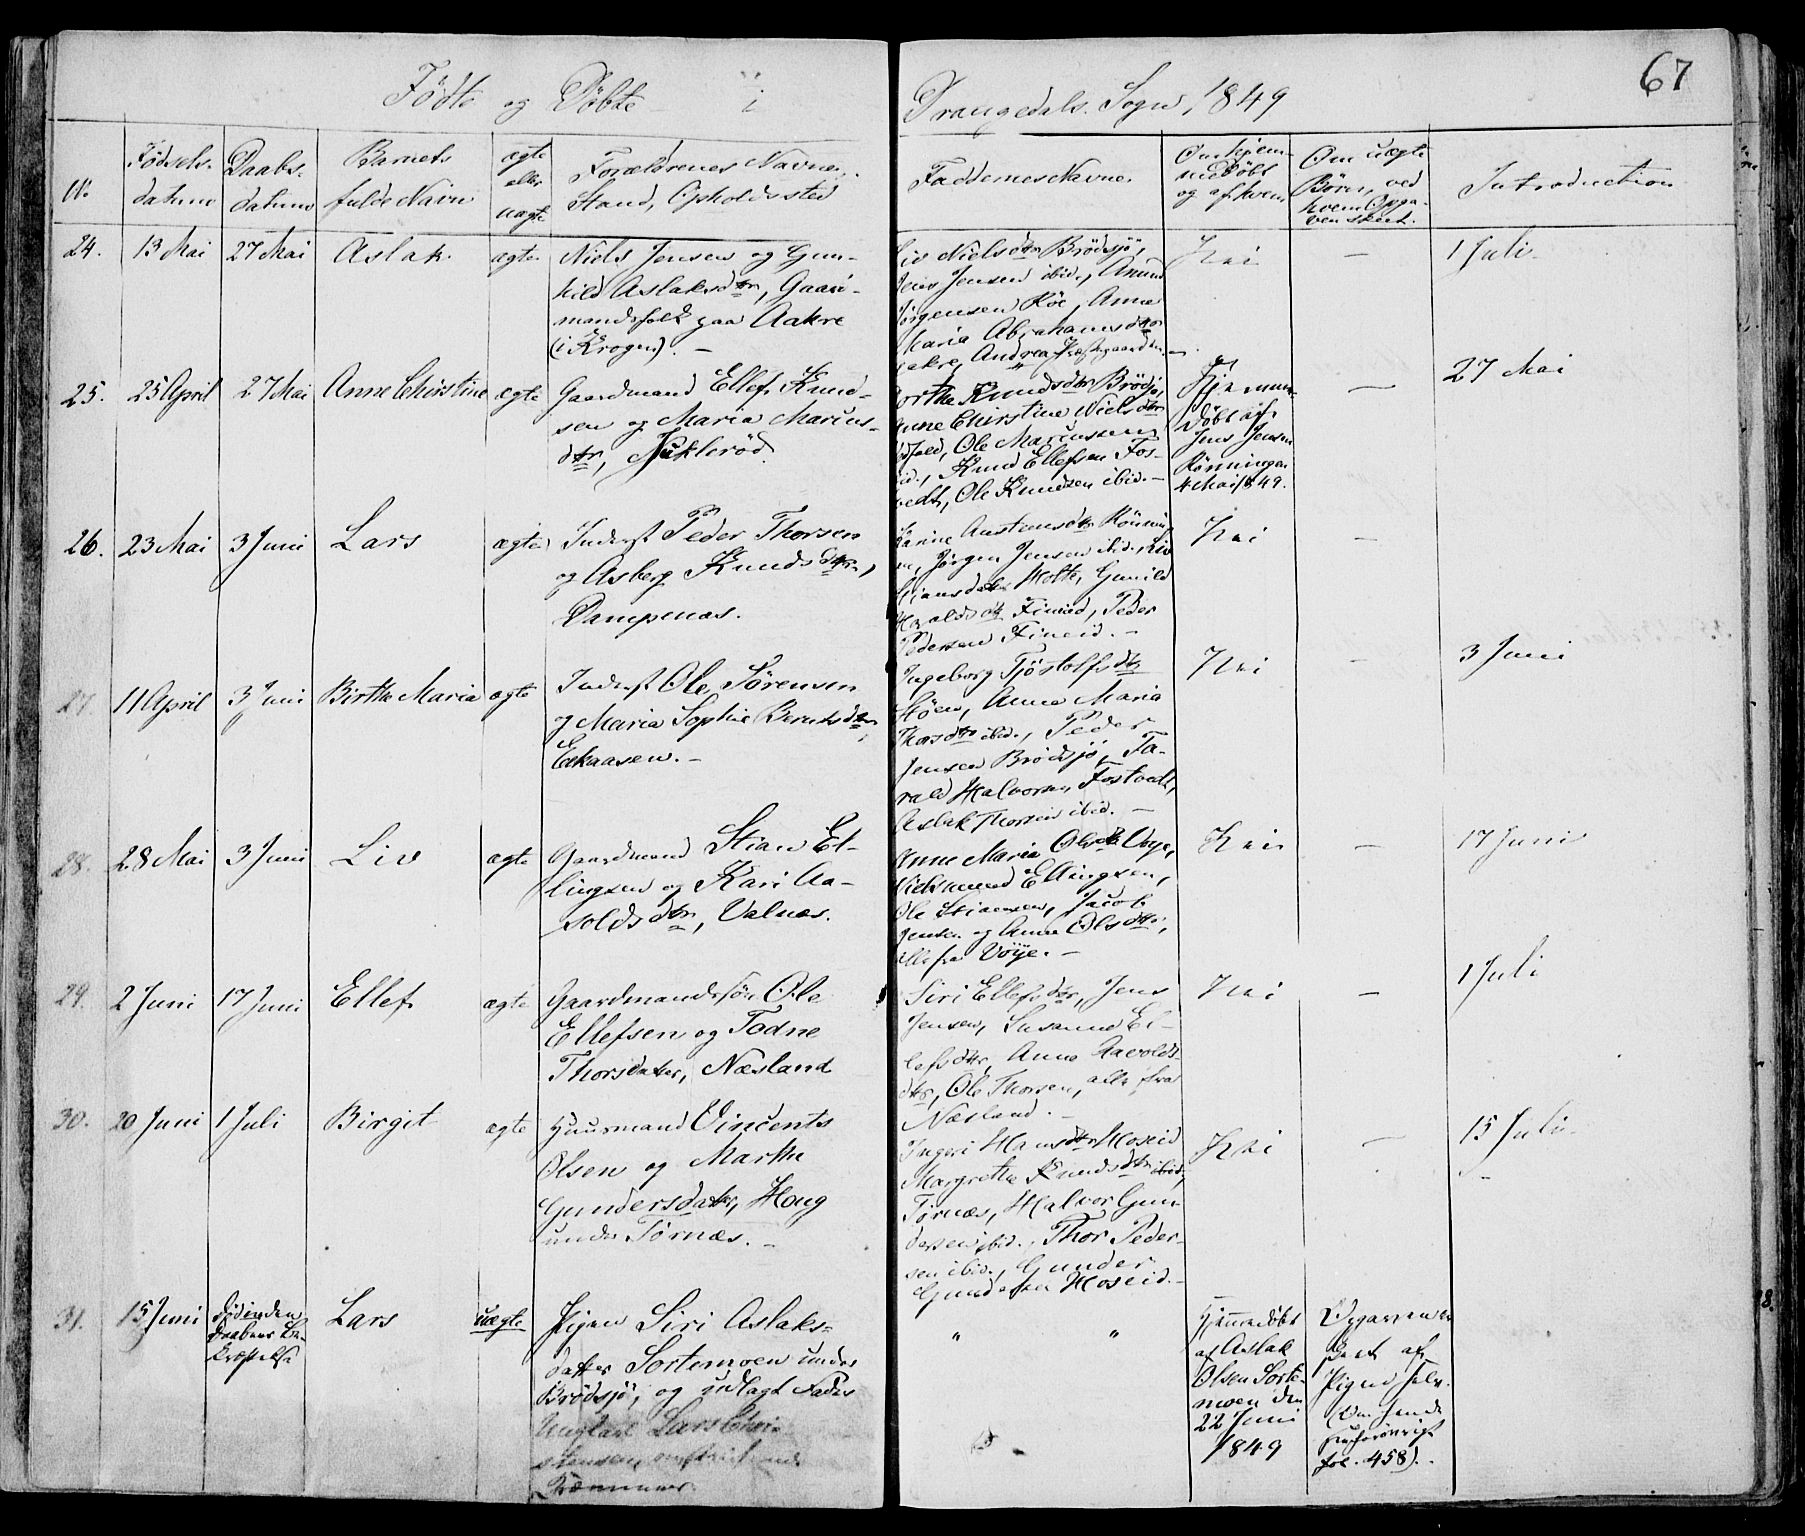 67
Fødte og Døbte i Drangedals Sogn, 1849
N. Fødsels- datum Daabs- datum Barnets fulde Navn ægte eller uægte Forældrenes Navne, Stand, Opholdssted Faddernes Navne. Om hjem- medøbt og af hvem Om uægte Børn, ved hvem Opga- ven skeet. Introduction
24. 13 Mai 27 Mai Aslak. ægte
Niels Jensen og Gun-
hild Aslaksdtr, Gaard-
mandsfolk paa Aakre
(i Krogen). –
Liv Nielsdtr Brødsjø,
Jens Jensen ibid., Anund
Jørgensen Røe, Anne
Maria Abrahamsdtr
Aakre, Andrea
Nei
–
1 Juli.
25. 25 April 27 Mai Anne Chirstine ægte
Gaardmand Ellef Knud-
sen og Maria Marcus-
dtr,
Dorthe Knudsdtr Brødsjø,
Anne Chirstine Nielsdtr
Ole Marcussen
ibid., Knud Ellefsen Fos-
tvedt, Ole Knudsen ibid. –
Hjemme-
døbt af
Jens Jensen
Rønningen
4 Mai 1849.
–
27 Mai
26. 23 Mai 3 Juni Lars ægte
Inderst Peder Thorsen
og Asberg Knudsdtr,
Dampenæs.
Karine Austensdtr Rønnin-
en, Jørgen Jensen ibid., Liv
Stiansdatter Holte, Gunild
Haraldsdtr Fineid, Peder
Pedersen Fineid. –
Nei
–
27. 11 April 3 Juni Birthe Maria ægte
Inderst Ole Sørensen
og Maria Sophie Berntsdtr,
Eekaasen. –
Ingeborg Tjøstolfsdtr
Støen, Anne Maria
Thorsdtr ibid., Peder
Jensen Brødsjø, Ta-
rald Halvorsen Fostvedt,
Aslak Thorsen ibid. –
Nei
–
3 Juni
28. 28 Mai 3 Juni Liv ægte
Gaardmand Stian El-
lingsen og Kari Aa-
solds dtr, Valnæs.
Anne Maria Olsdtr Voje,
Nielsmund Ellingsen,
Ole Stiansen, Jacob
Jensen og Anne Olsdtr,
alle fra Vøije. –
Nei
–
17 Juni
29. 2 Juni 17 Juni Ellef ægte
Gaardmandssøn Ole
Ellefsen og Todne
Thorsdatter, Næsland
Siri Ellefsdtr, Jens
Jensen, Susanne El-
lefsdtr, Anne Aavolds-
dtr, Ole Thorsen, alle fra
Næsland. –
Nei
–
1 Juli
30. 20 Juni 1 Juli Birgit ægte
Huusmand Vincents
Olsen og Marthe
Gundersdatter, Houg
under Tørnæs. –
Ingeri Hansdtr Moseid
Margrethe Knudsdtr ibid.,
Tørnæs, Halvor Gun-
dersen ibid., Thor Peder-
sen ibid., Gunder
Gundersen Moseid. –
Nei
–
15 Juli.
31. 15 Juni
død inden
Daabens Be-
kræftelse
Lars uægte
Pigen Siri Aslaks-
datter Sortemoen under
Brødsjø, og udlagt Fader
Ungkarl Lars Chri-
stensen,
" "
Hjemmedøbt
af Aslak
Olsen Sorte-
moen den
22 Juni
1849
Opgaven er
skeet af
Pigen selv.
fol. 458).